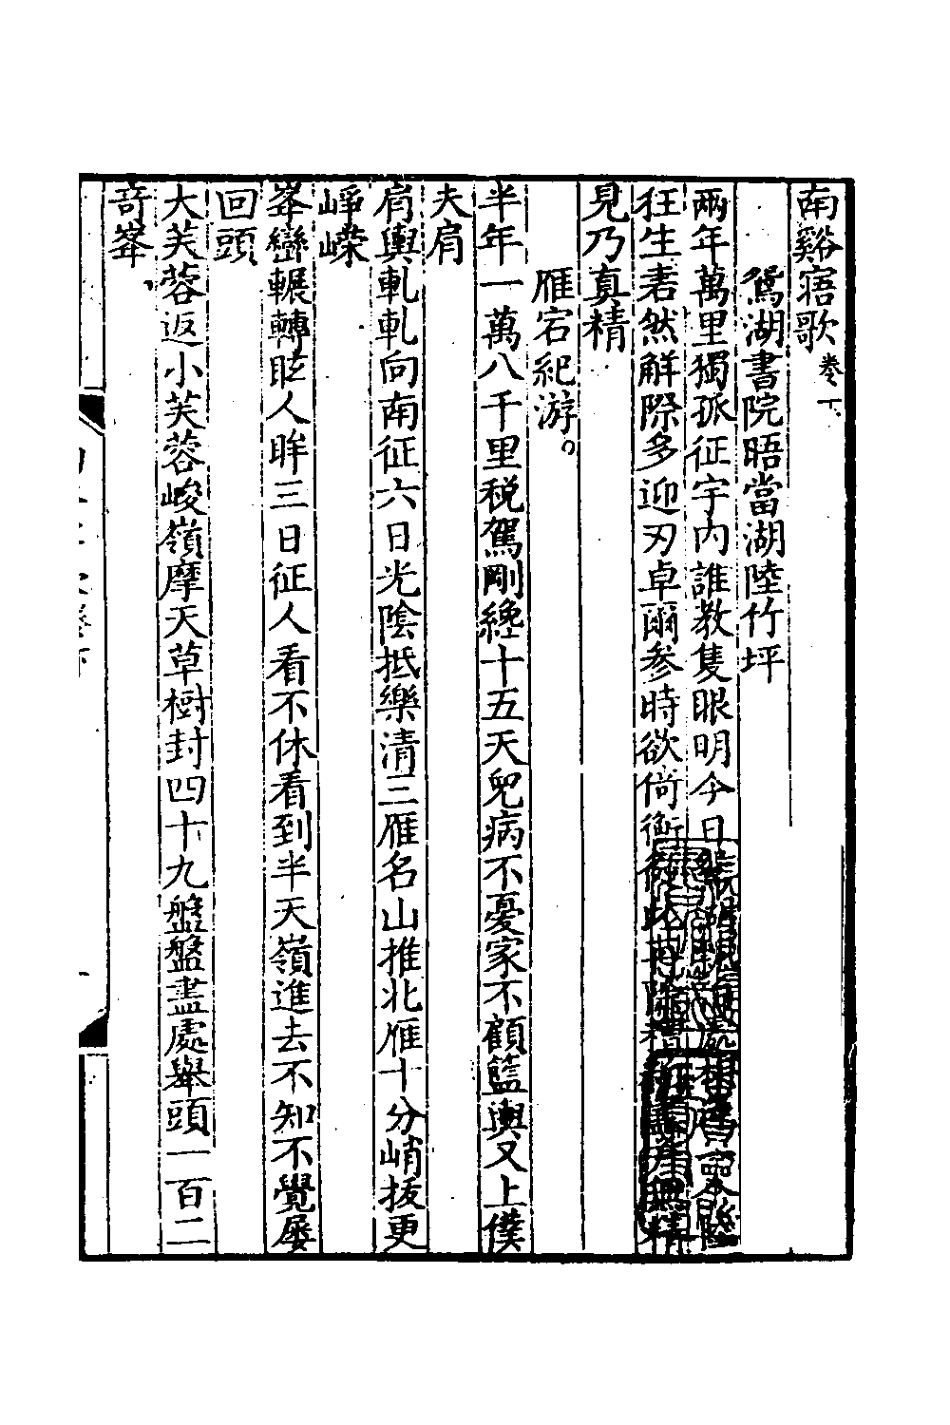 南谿寤歌 卷下
鴛湖書院晤當湖陸竹坪
兩年萬里獨孤征宇内誰教隻眼明今日
狂生砉然解際多迎刃卓爾参時欲倚衡從此
見乃真精
雁宕紀游。
半年一萬八千里税駕剛纔十五天兒病不憂家不顧籃輿又上僕
夫肩
肩輿軋軋向南征六日光陰抵樂清三雁名山推北雁十分峭拔更
崢嶸
峯巒輾轉眩人眸三日征人看不休看到半天嶺進去不知不覺屡
回頭
大芙蓉返小芙蓉峻嶺摩天草樹封四十九盤盤盡處舉頭一百二
竒峯